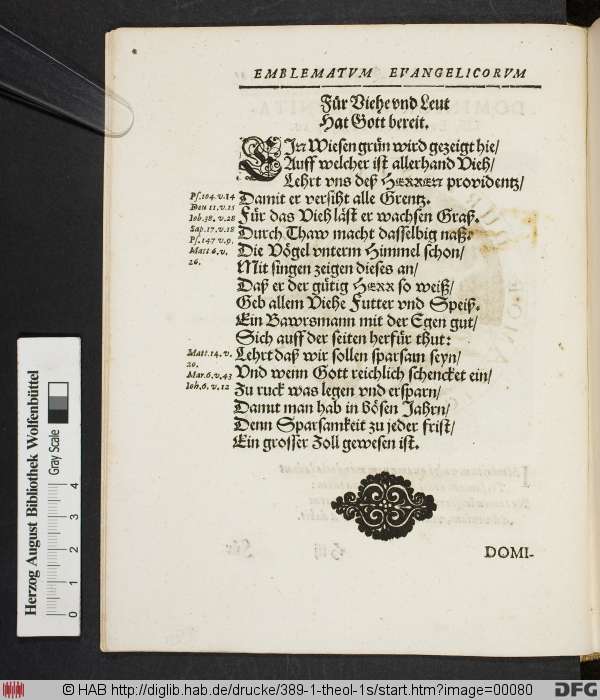 EMBLEMATVM EVANGELICORVM
Für Viehe vnd Leut
Hat Gott bereit.
EIn Wiesen grün wird gezeigt hie/
Auff welcher ist allerhand Vieh/
Lehrt vns deß HERREN providentz/
Ps. 104. v. 14 Damit er versiht alle Grentz.
Deu 11. v. 15 Für das Vieh läst er wachsen Graß.
Iob. 38. v. 28
Sap. 17. v. 18 Durch Thaw macht dasselbig naß.
Ps. 147 v. 9. Die Vögel vnterm Himmel schon/
Matt 6. v.
26. Mit singen zeigen dieses an/
Daß er der gütig HERR so weiß/
Geb allem Viehe Futter vnd Speiß.
Ein Bawrsmann mit der Egen gut/
Sich auff der seiten herfür thut:
Matt. 14. v. Lehrt daß wir sollen sparsam seyn/
20.
Mar. 6. v. 43 Vnd wenn Gott reichlich schencket ein/
Ioh. 6. v. 12 Zu ruck was legen vnd ersparn/
Damit man hab in bösen Jahrn/
Denn Sparsamkeit zu jeder frist/
Ein grosser Zoll gewesen ist.
DOMI-
Herzog August Bibliothek Wolfenbüttel
Gray Scale
0 1 2 3 4
© HAB http://diglib.hab.de/drucke/389-1-theol-1s/start.htm?image=00080
DFG